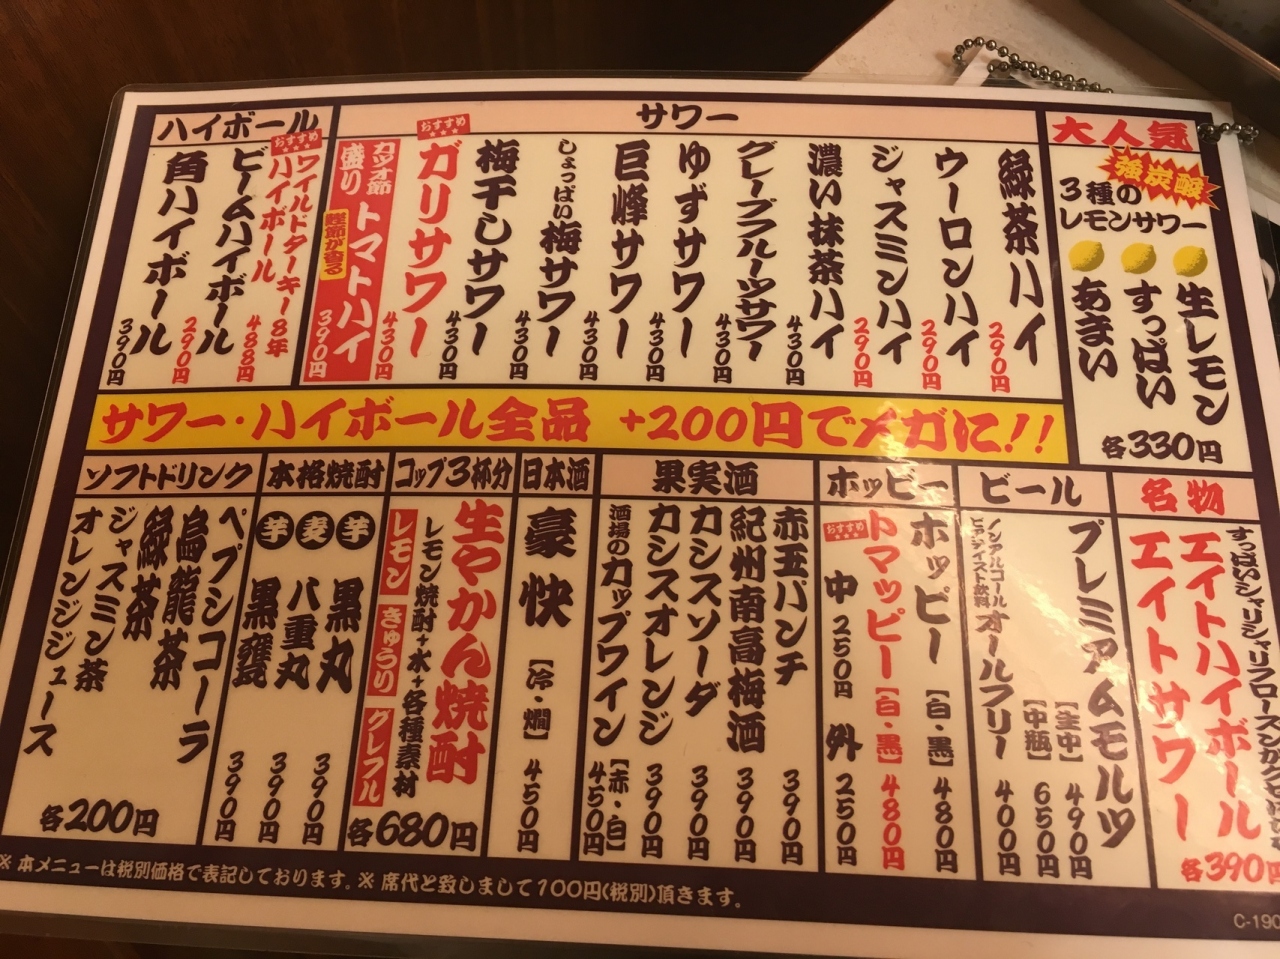 大人気
強炭酸
3種の
レモンサワー
生レモン
すっぱい
あまい
各330円
サワー
緑茶ハイ 290円
ウーロンハイ 290円
ジャスミンハイ 290円
濃い抹茶ハイ 430円
グレープフルーツサワー 430円
ゆずサワー 430円
巨峰サワー 430円
しょっぱい梅サワー 430円
梅干しサワー 430円
おすすめ
ガリサワー 430円
カツオ節
盛り トマトハイ 390円
鰹節が香る
ハイボール
おすすめ
ワイルドターキー8年
ハイボール 488円
ビームハイボール 290円
角ハイボール 390円
サワー・ハイボール全品 +200円でメガに!!
名物
すっぱいシャリシャリフローズンが
エイトハイボール
エイトサワー
各390円
ビール
プレミアムモルツ
【生中】 490円
【中瓶】 650円
ノンアルコール
ビアテイスト飲料 オールフリー 400円
ホッピー
ホッピー 【白・黒】 480円
おすすめ
トマッピー 【白・黒】 480円
中 250円 外 250円
果実酒
赤玉パンチ 390円
紀州南高梅酒 390円
カシスソーダ 390円
カシスオレンジ 390円
酒場のカップワイン 【赤・白】 450円
日本酒
豪快 【冷・燗】 450円
コップ3杯分
生やかん焼酎
レモン焼酎+水+各種素材
レモン きゅうり グレフル
各680円
本格焼酎
芋 黒丸 390円
麦 八重丸 390円
芋 黒甕 390円
ソフトドリンク
ペプシコーラ
烏龍茶
緑茶
ジャスミン茶
オレンジジュース
各200円
※本メニューは税別価格で表記しております。※席代と致しまして100円(税別)頂きます。
C-190